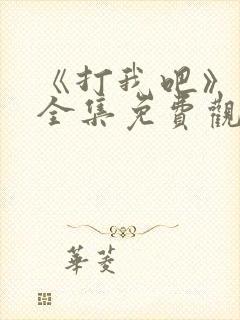 《打我吧》
全集免費觀
華菱